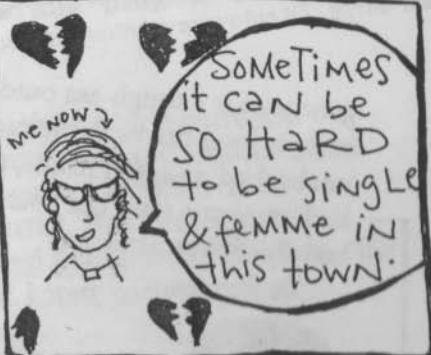 ME NOW
SOMETIMES
it CAN be
SO HARD
to be SiNGLE
& FEMME iN
this towN.